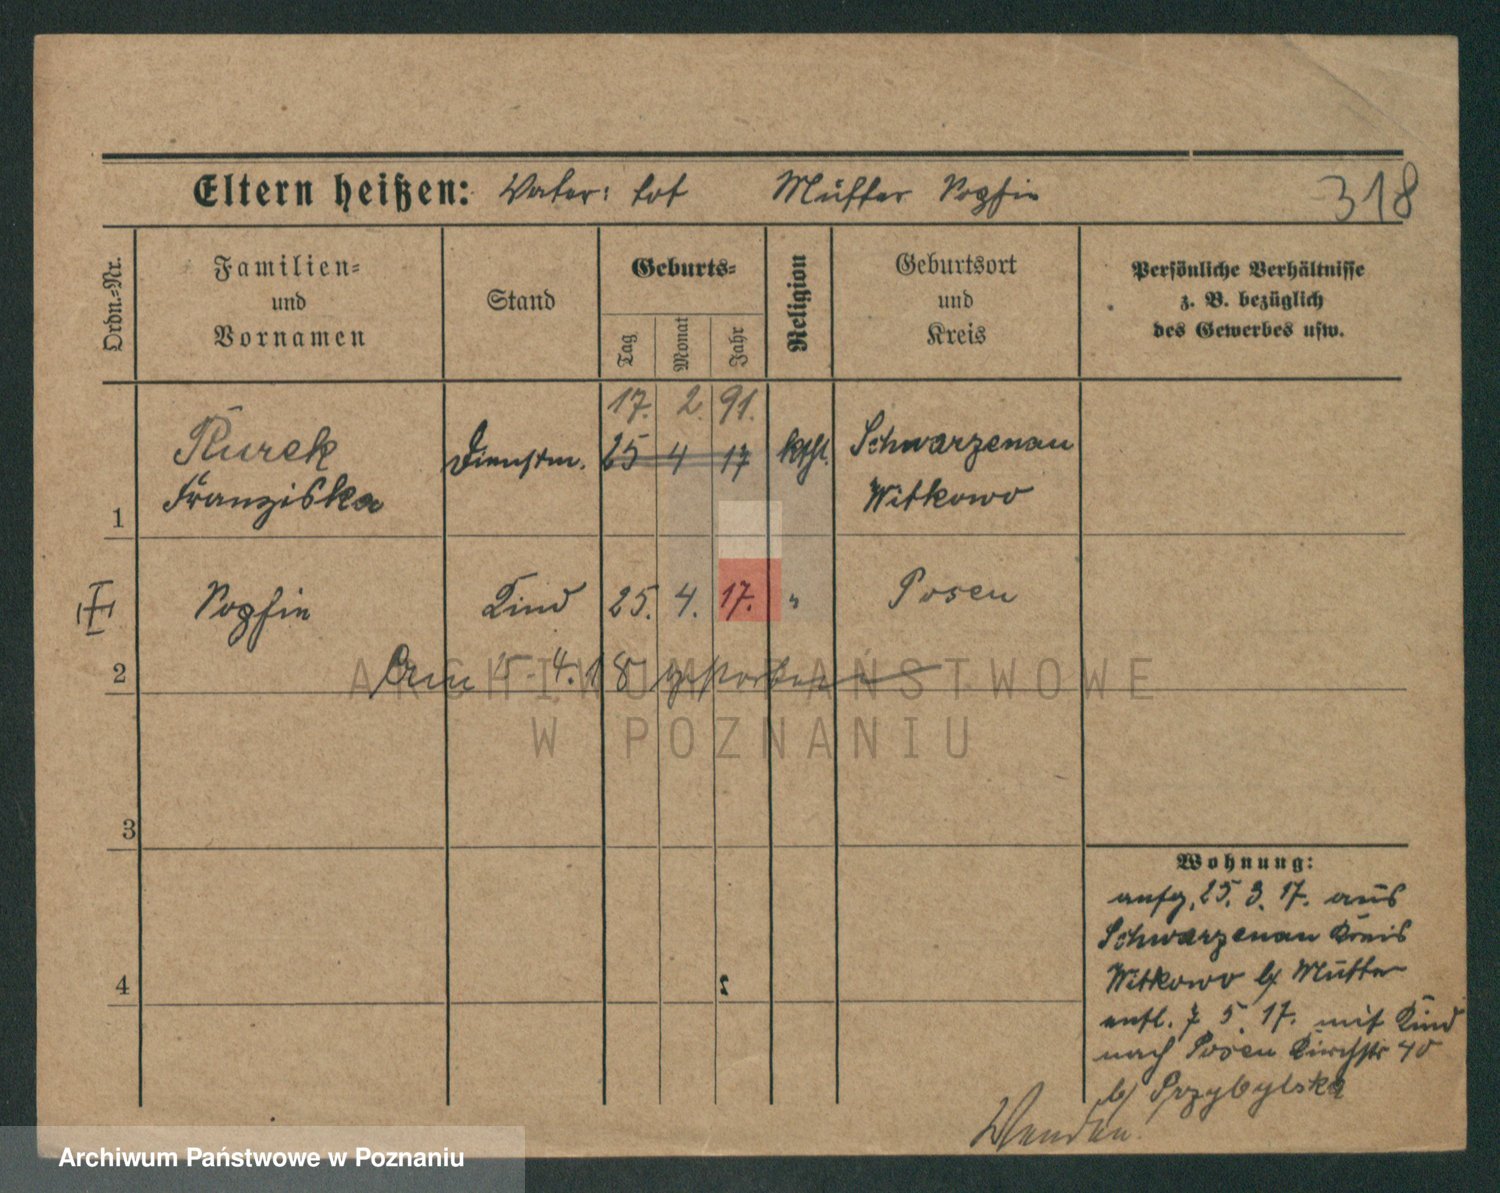 Eltern heißen: Vater: tot Mutter Sophie
318
Ordn.-Nr.
Familien-
und
Vornamen
Stand
Geburts-
Tag
Monat
Jahr
Religion
Geburtsort
und
Kreis
Persönliche Verhältnisse
z. B. bezüglich
des Gewerbes usw.
17. 2. 91.
Kurek Dienstm. 25 4 17 kath. Schwarzenau
1 Franziska Witkowo
Sophie Kind 25. 4. 17. " Posen
2 Am 5. 4. 18 gestorben
3
Wohnung:
aufg. 25. 3. 17. aus
Schwarzenau Kreis
4 Witkowo b/ Mutter
entl. 7 5. 17. mit Kind
nach Posen Kirchstr 40
b/ Przybylska
Wenden!
ARCHIWUM PAŃSTWOWE
W POZNANIU
Archiwum Państwowe w Poznaniu